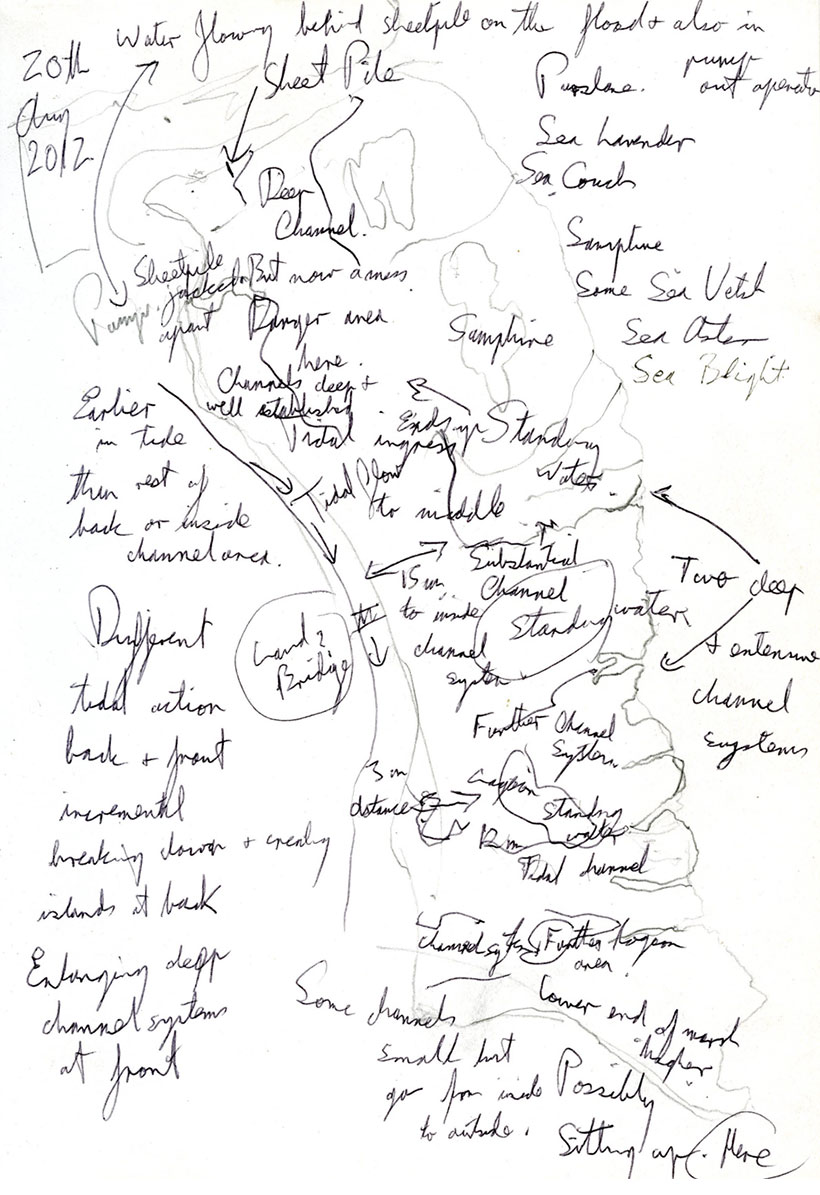 Water flowing behind sheetpile on the flood + also in
pump
out operation
20th
Aug
2012
Sheet Pile
Purslane.
Sea Lavender
Sea Couch
Samphire
Some Sea Vetch
Sea Aster
Sea Blight
Deep
Channel.
Sheetpile
jacked
apart
But now a mess.
Danger area
here.
Pump.
Samphire
Channels deep +
well established
Tidal ingress
Ends up Standing
Water
Earlier
in tide
than rest of
back or inside
channel area.
Tidal flow
to middle
Substantial
Channel
15 m
to inside
channel
system
Standing water
Two deep
+ extensive
channel
systems
Land ?
Bridge
Different
tidal action
back + front
incremental
breaking down + creating
islands at back
Further Channel
System
3 m
distance
Lagoon
Standing
water
12 m
Tidal channel
Enlarging deep
channel systems
at front
Channel system
Further lagoon
area
Some channels
small but
go from inside
to outside.
Lower end of marsh
higher
Possibly
Silting up. Here